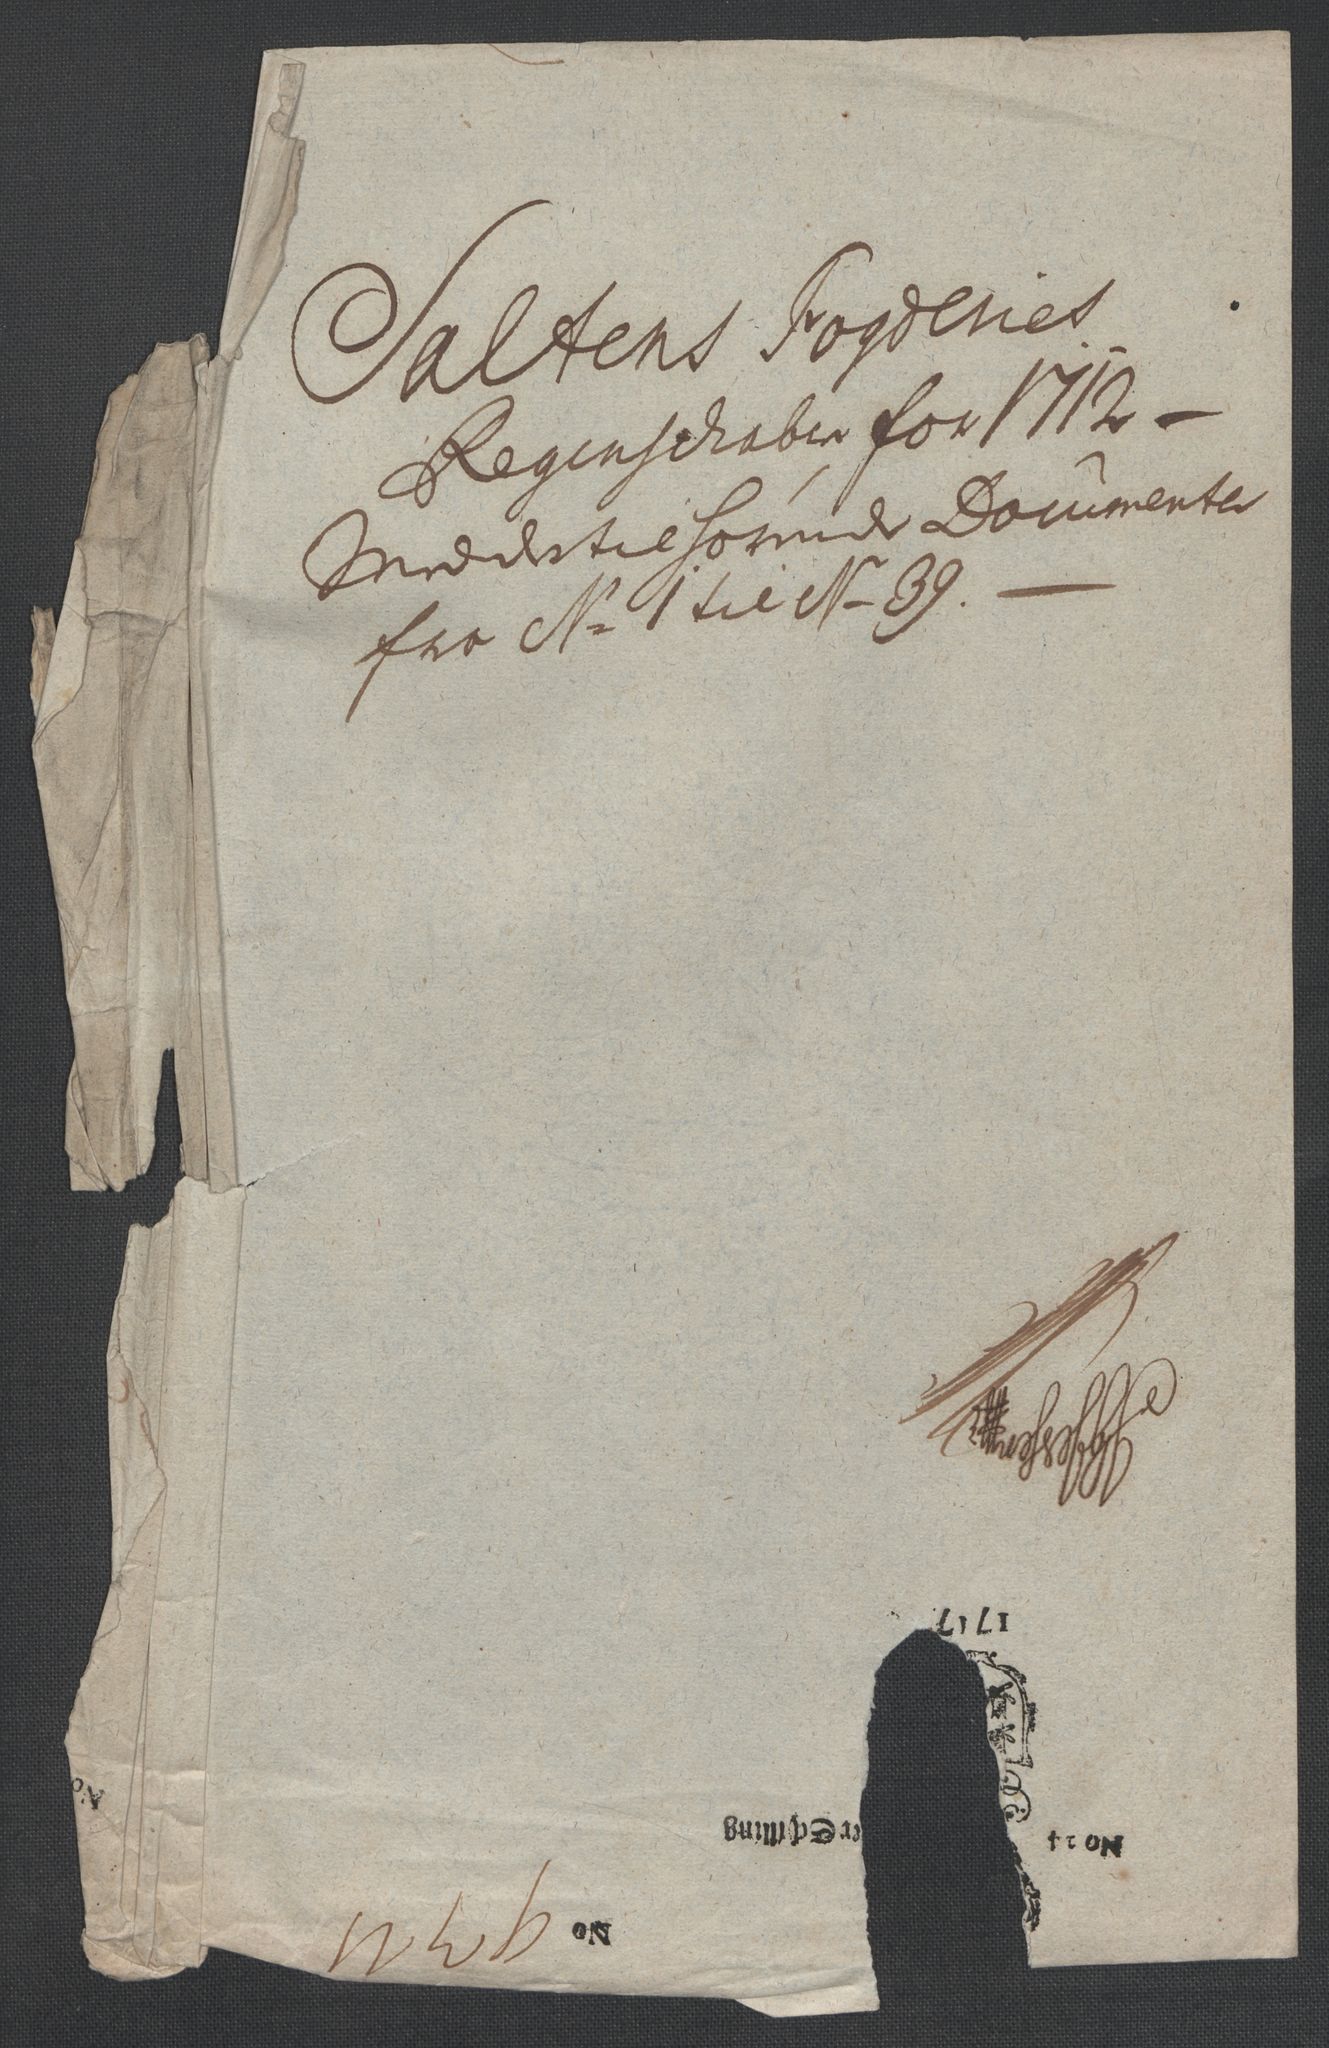 Saltens Fogderies
Regenschaber for 1712 –
Medds tilhörende Documenter
fra No 1 til No 39. —
1717
No 21
er Schilling
No
No